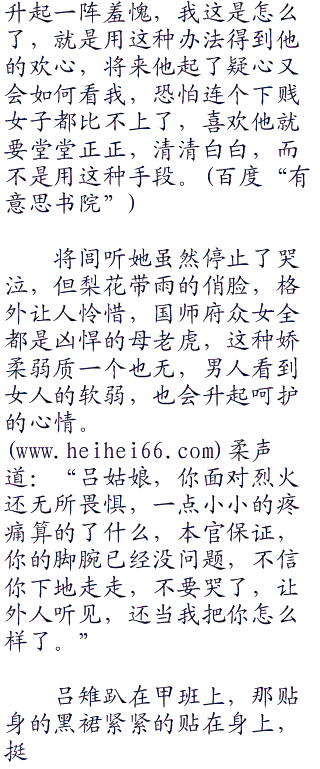 升起一阵羞愧，我这是怎么
了，就是用这种办法得到他
的欢心，将来他起了疑心又
会如何看我，恐怕连个下贱
女子都比不上了，喜欢他就
要堂堂正正，清清白白，而
不是用这种手段。(百度“有
意思书院”)
将闾听她虽然停止了哭
泣，但梨花带雨的俏脸，格
外让人怜惜，国师府众女全
都是凶悍的母老虎，这种娇
柔弱质一个也无，男人看到
女人的软弱，也会升起呵护
的心情。
(www.heihei66.com)柔声
道：“吕姑娘，你面对烈火
还无所畏惧，一点小小的疼
痛算的了什么，本官保证，
你的脚腕已经没问题，不信
你下地走走，不要哭了，让
外人听见，还当我把你怎么
样了。”
吕雉趴在甲班上，那贴
身的黑裙紧紧的贴在身上，
挺